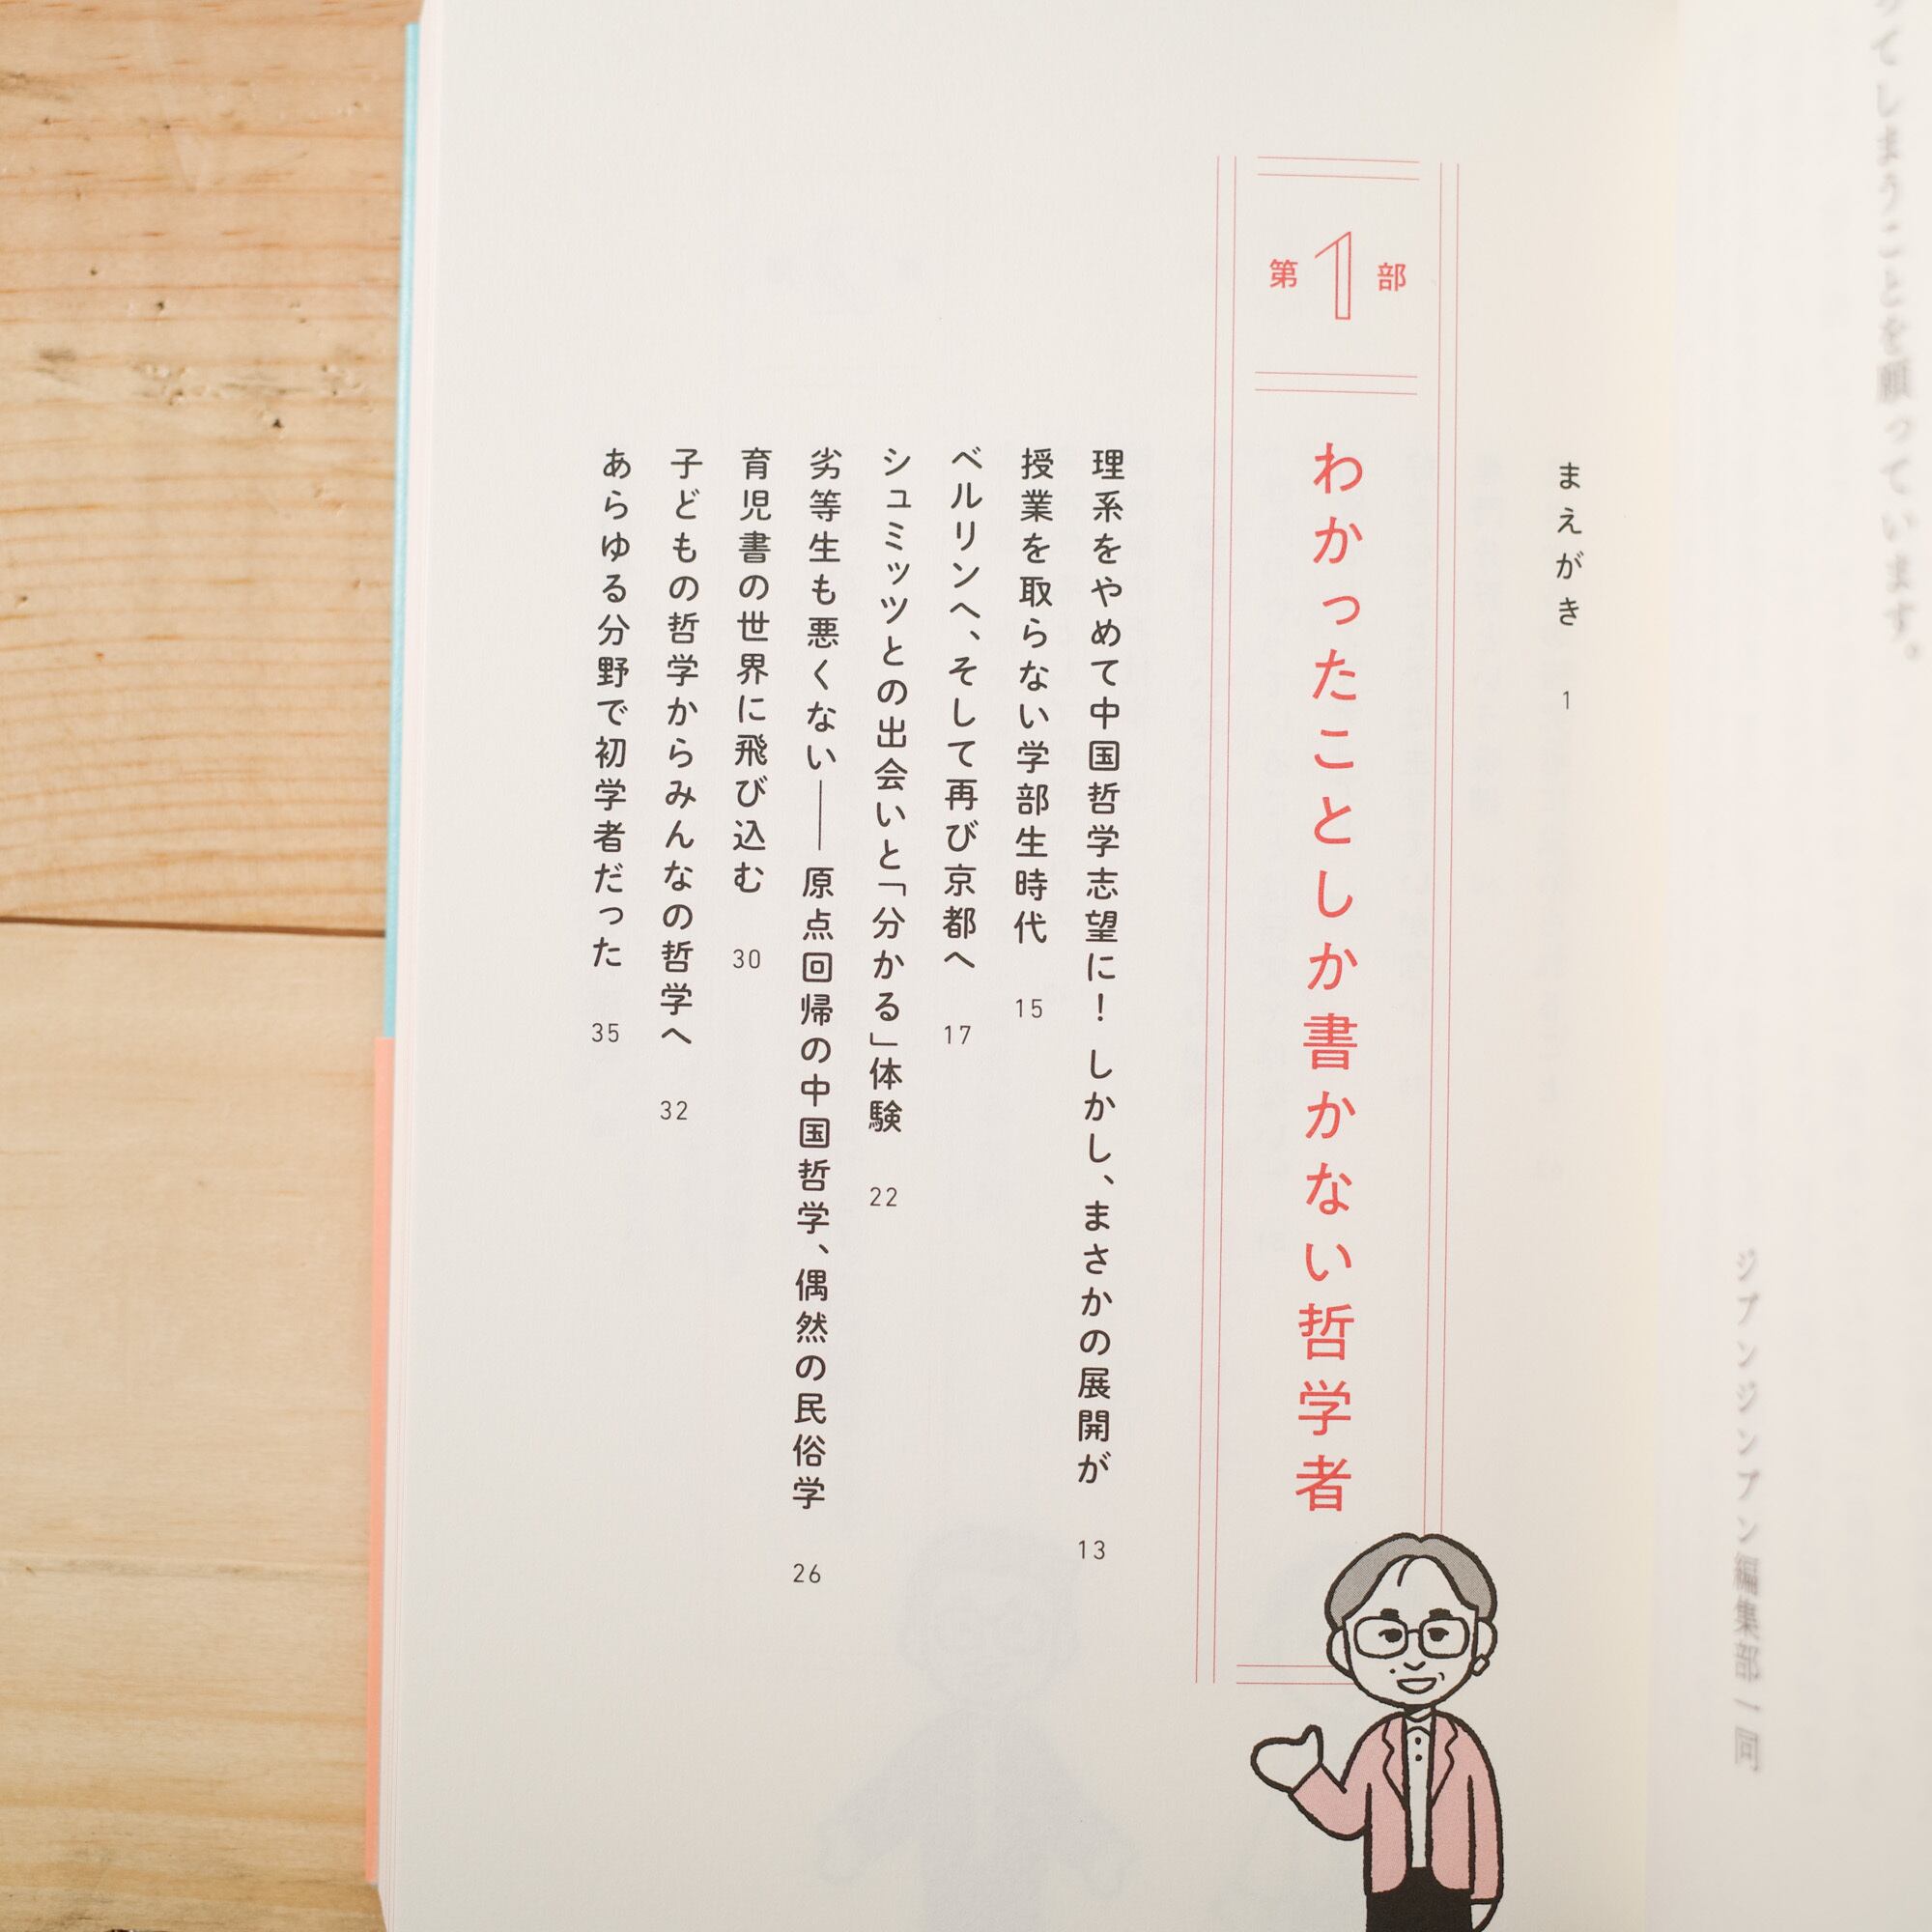 てしまうことを願っています。
ジブンジンブン編集部一同
まえがき 1
第1部
わかったことしか書かない哲学者
理系をやめて中国哲学志望に！ しかし、まさかの展開が 13
授業を取らない学部生時代 15
ベルリンへ、そして再び京都へ 17
シュミッツとの出会いと「分かる」体験 22
劣等生も悪くない——原点回帰の中国哲学、偶然の民俗学 26
育児書の世界に飛び込む 30
子どもの哲学からみんなの哲学へ 32
あらゆる分野で初学者だった 35